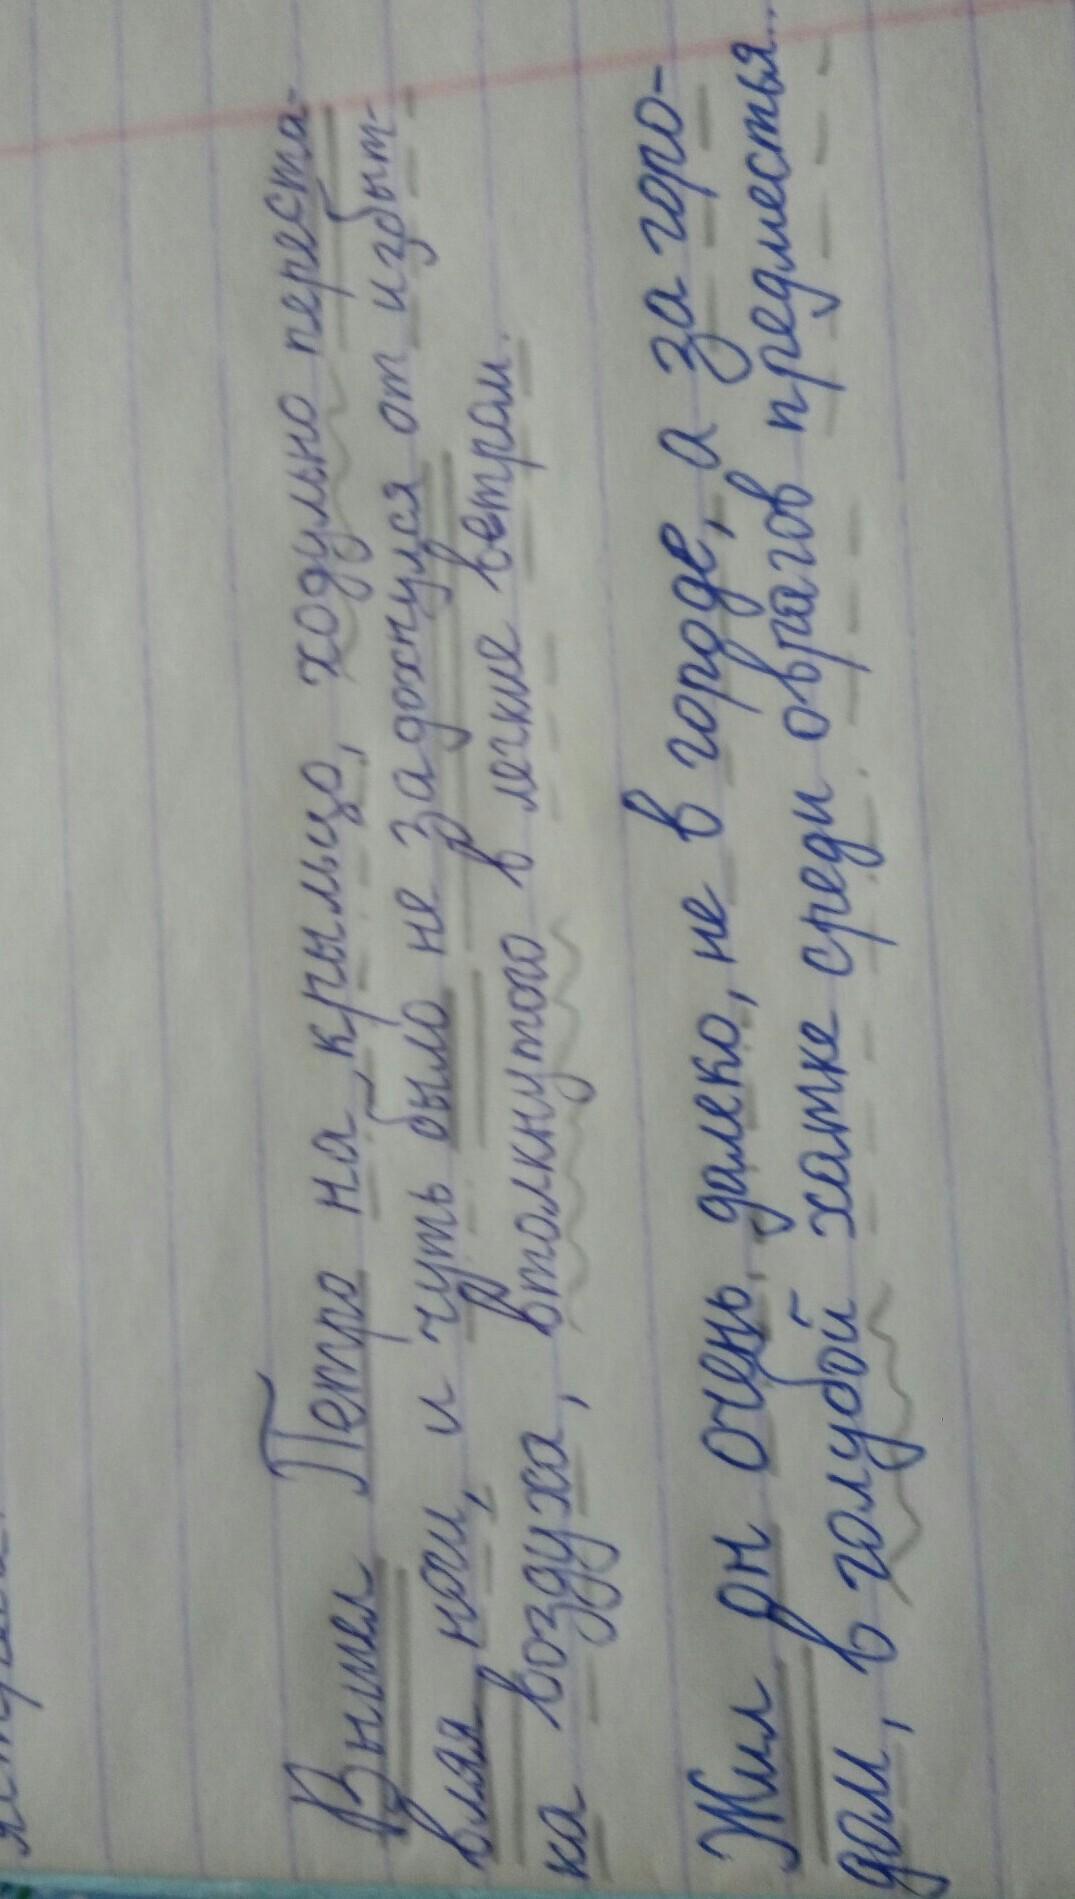 Вышел Петро на крыльцо, ходульно переста-
вляя ноги, и чуть было не задохнулся от избыт-
ка воздуха, втолкнутого в легкие ветрам.
Жил он очень далеко, не в городе, а за горо-
дом, в голубой хатке среди оврагов предместья...